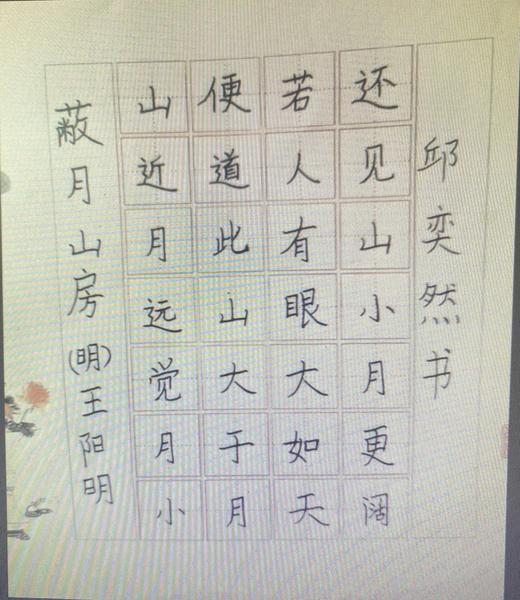 蔽月山房(明)王阳明
山近月远觉月小
便道此山大于月
若人有眼大如天
还见山小月更阔
邱奕然书